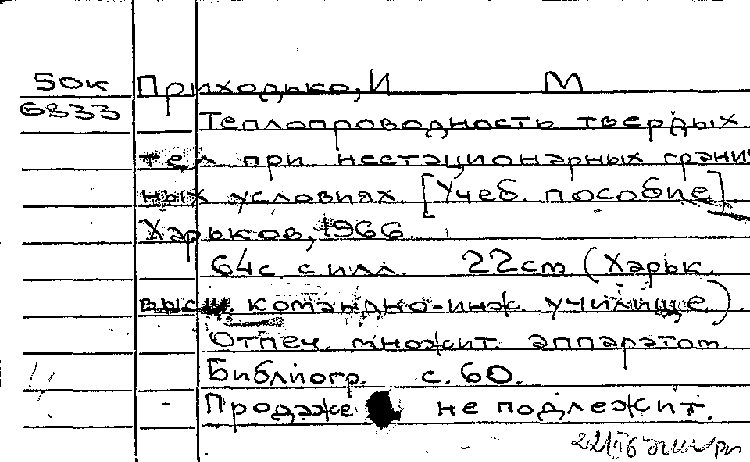 50к Приходько, И М
6833
Теплопроводность твердых
тел при нестационарных гранич
ных условиях. [Учеб. пособие]
Харьков, 1966
64с. с илл. 22см (Харьк.
высш. командно-инж. училище)
Отпеч. множит. аппаратом
Библиогр. с. 60.
Продаже не подлежит.